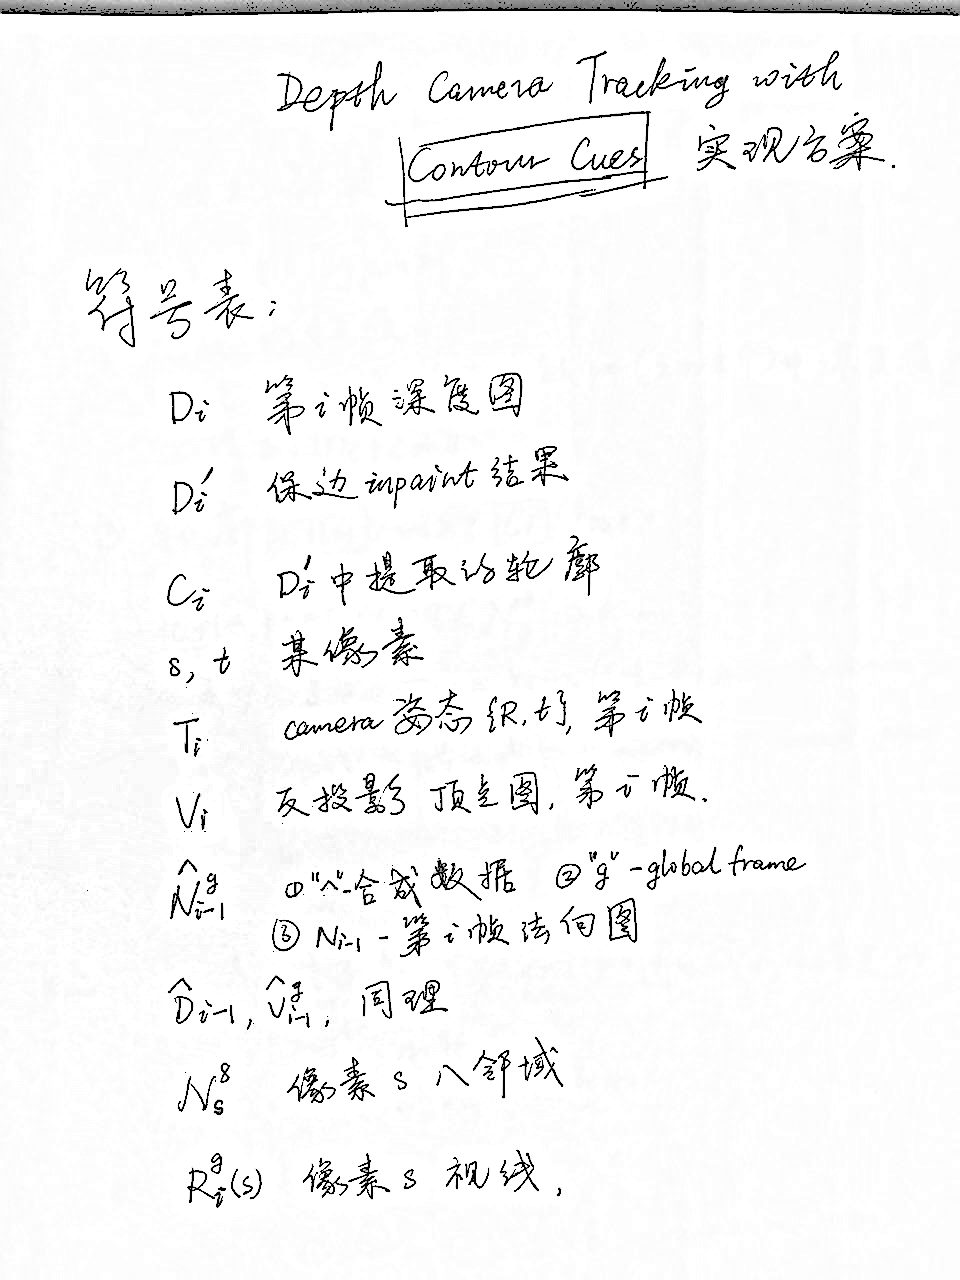 Depth Camera Tracking with
Contour Cues 实现方案.
符号表:
Di 第i帧深度图
Di′ 保边inpaint结果
Ci Di′中提取的轮廓
s, t 某像素
Ti camera姿态{R,t}, 第i帧
Vi 反投影顶点图, 第i帧.
N̂ᵍi-1 ①"^"-合成数据 ②"g"-global frame
③ Ni-1 - 第i帧法向图
D̂i-1, V̂ᵍi-1, 同理
Ns⁸ 像素s八邻域
Rᵍi(s) 像素s视线,